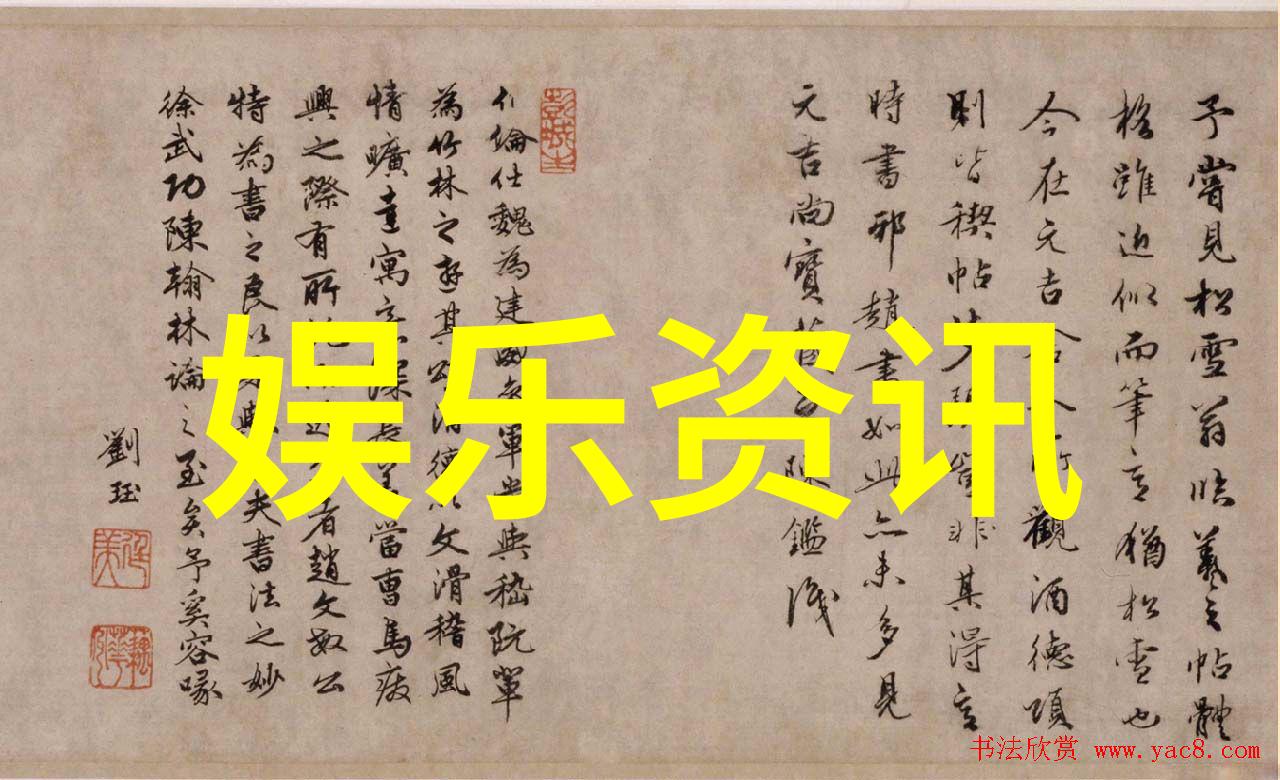 予嘗見松雪翁臨羲之帖體
格雖近似而筆意猶松雪也
今在元吉舍人所觀酒德頌
則皆稧帖
時書邪趙書如此亦未多見
元吉尚寶 陳鑑識
伶倫仕魏為建 軍與嵇阮輩
為竹林之遊其 沿德以文滑稽風
情曠達寓意深 當曹馬癈
興之際有所 者趙文敏公
特為書之良以 夫書法之妙
徐武功陳翰林論之至矣予奚容喙
劉珏
娱乐资讯
书法欣赏 www.yac8.com